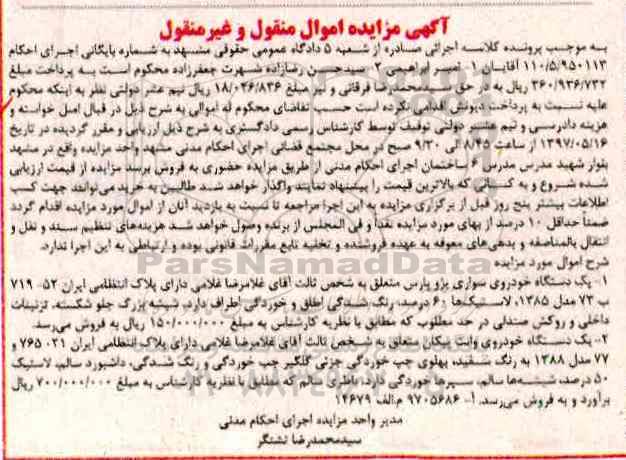 آگهی مزایده اموال منقول و غیرمنقول
به موجب پرونده کلاسه اجرائی صادره از شعبه ۵ دادگاه عمومی حقوقی مشهد به شماره بایگانی اجرای احکام
۱۱۰/۵/۹۵۰۱۱۳ آقایان ۱- امیر ابراهیمی ۲- سیدحسن رضازاده شهرت جعفرزاده محکوم است به پرداخت مبلغ
۳۶۰/۹۳۶/۷۳۲ ریال به در حق سیدمحمدرضا فرقانی و نیز مبلغ ۱۸/۰۴۶/۸۳۶ ریال نیم عشر دولتی نظر به اینکه محکوم
علیه نسبت به پرداخت دیونش اقدامی نکرده است حسب تقاضای محکوم له اموالی به شرح ذیل در قبال اصل خواسته و
هزینه دادرسی و نیم عشر دولتی توقیف توسط کارشناس رسمی دادگستری به شرح ذیل ارزیابی و مقرر گردیده در تاریخ
۱۳۹۷/۰۵/۱۶ از ساعت ۸/۴۵ الی ۹/۳۰ صبح در محل مجتمع قضائی اجرای احکام مدنی مشهد واحد مزایده واقع در مشهد
بلوار شهید مدرس مدرس ۶ ساختمان اجرای احکام مدنی از طریق مزایده حضوری به فروش برسد مزایده از قیمت ارزیابی
شده شروع و به کسانی که بالاترین قیمت را پیشنهاد نمایند واگذار خواهد شد طالبین به خرید می‌توانند جهت کسب
اطلاعات بیشتر پنج روز قبل از برگزاری مزایده به این اجرا مراجعه تا نسبت به بازدید آنان از اموال مورد مزایده اقدام گردد
ضمناً حداقل ۱۰ درصد از بهای مورد مزایده نقداً و فی المجلس از برنده وصول خواهد شد هزینه‌های تنظیم سند و نقل و
انتقال بالمناصفه و بدهی‌های معوقه به عهده فروشنده و تخلیه تابع مقررات قانونی بوده و ارتباطی به این اجرا ندارد.
شرح اموال مورد مزایده
ParsNamadData
۱- یک دستگاه خودروی سواری پژو پارس متعلق به شخص ثالث آقای غلامرضا غلامی دارای پلاک انتظامی ایران ۵۲- ۷۱۹
ب ۷۳ مدل ۱۳۸۵، لاستیک‌ها ۶۰ درصد، رنگ‌شدگی اطاق و خوردگی اطراف دارد، شیشه بزرگ جلو شکسته، تزئینات
داخلی و روکش صندلی در حد مطلوب که مطابق با نظریه کارشناس به مبلغ ۱۵۰/۰۰۰/۰۰۰ ریال به فروش می‌رسد.
۲- یک دستگاه خودروی وانت پیکان متعلق به شخص ثالث آقای غلامرضا غلامی دارای پلاک انتظامی ایران ۲۱- ۷۶۵ و
۷۷ مدل ۱۳۸۸ به رنگ سفید، پهلوی چپ خوردگی جزئی گلگیر چپ خوردگی و رنگ شدگی، داشبورد سالم، لاستیک
۵۰ درصد، شیشه‌ها سالم، سپرها خوردگی دارد، باطری سالم که مطابق با نظریه کارشناس به مبلغ ۷۰۰/۰۰۰/۰۰۰ ریال
برآورد و به فروش می‌رسد. آ- ۹۷۰۵۶۸۶ م.الف ۱۴۶۷۹
مدیر واحد مزایده اجرای احکام مدنی
سیدمحمدرضا تشتگر